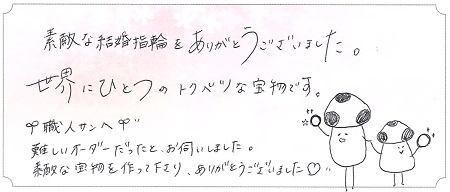 素敵な結婚指輪をありがとうございました。
世界にひとつのトクベツな宝物です。
職人サンへ
難しいオーダーだったと、お伺いしました。
素敵な宝物を作って下さり、ありがとうございました♡